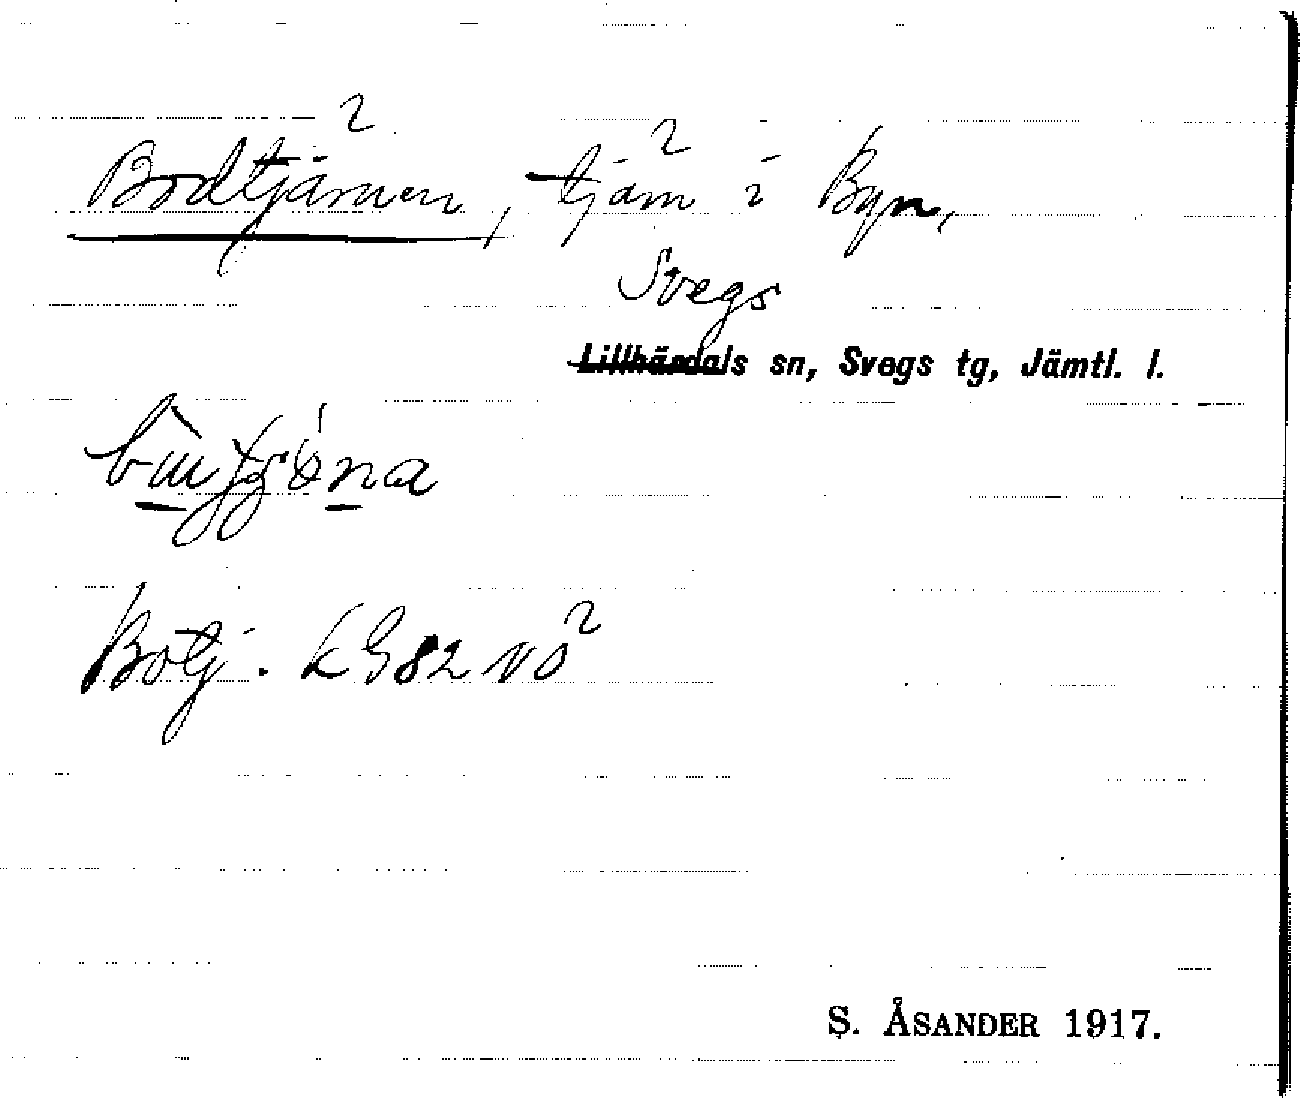 Bodtjärnen, tjärn i Byn,
Svegs
Lillhärdals sn, Svegs tg, Jämtl. l.
Botj. KG 82 NO
S. ÅSANDER 1917.